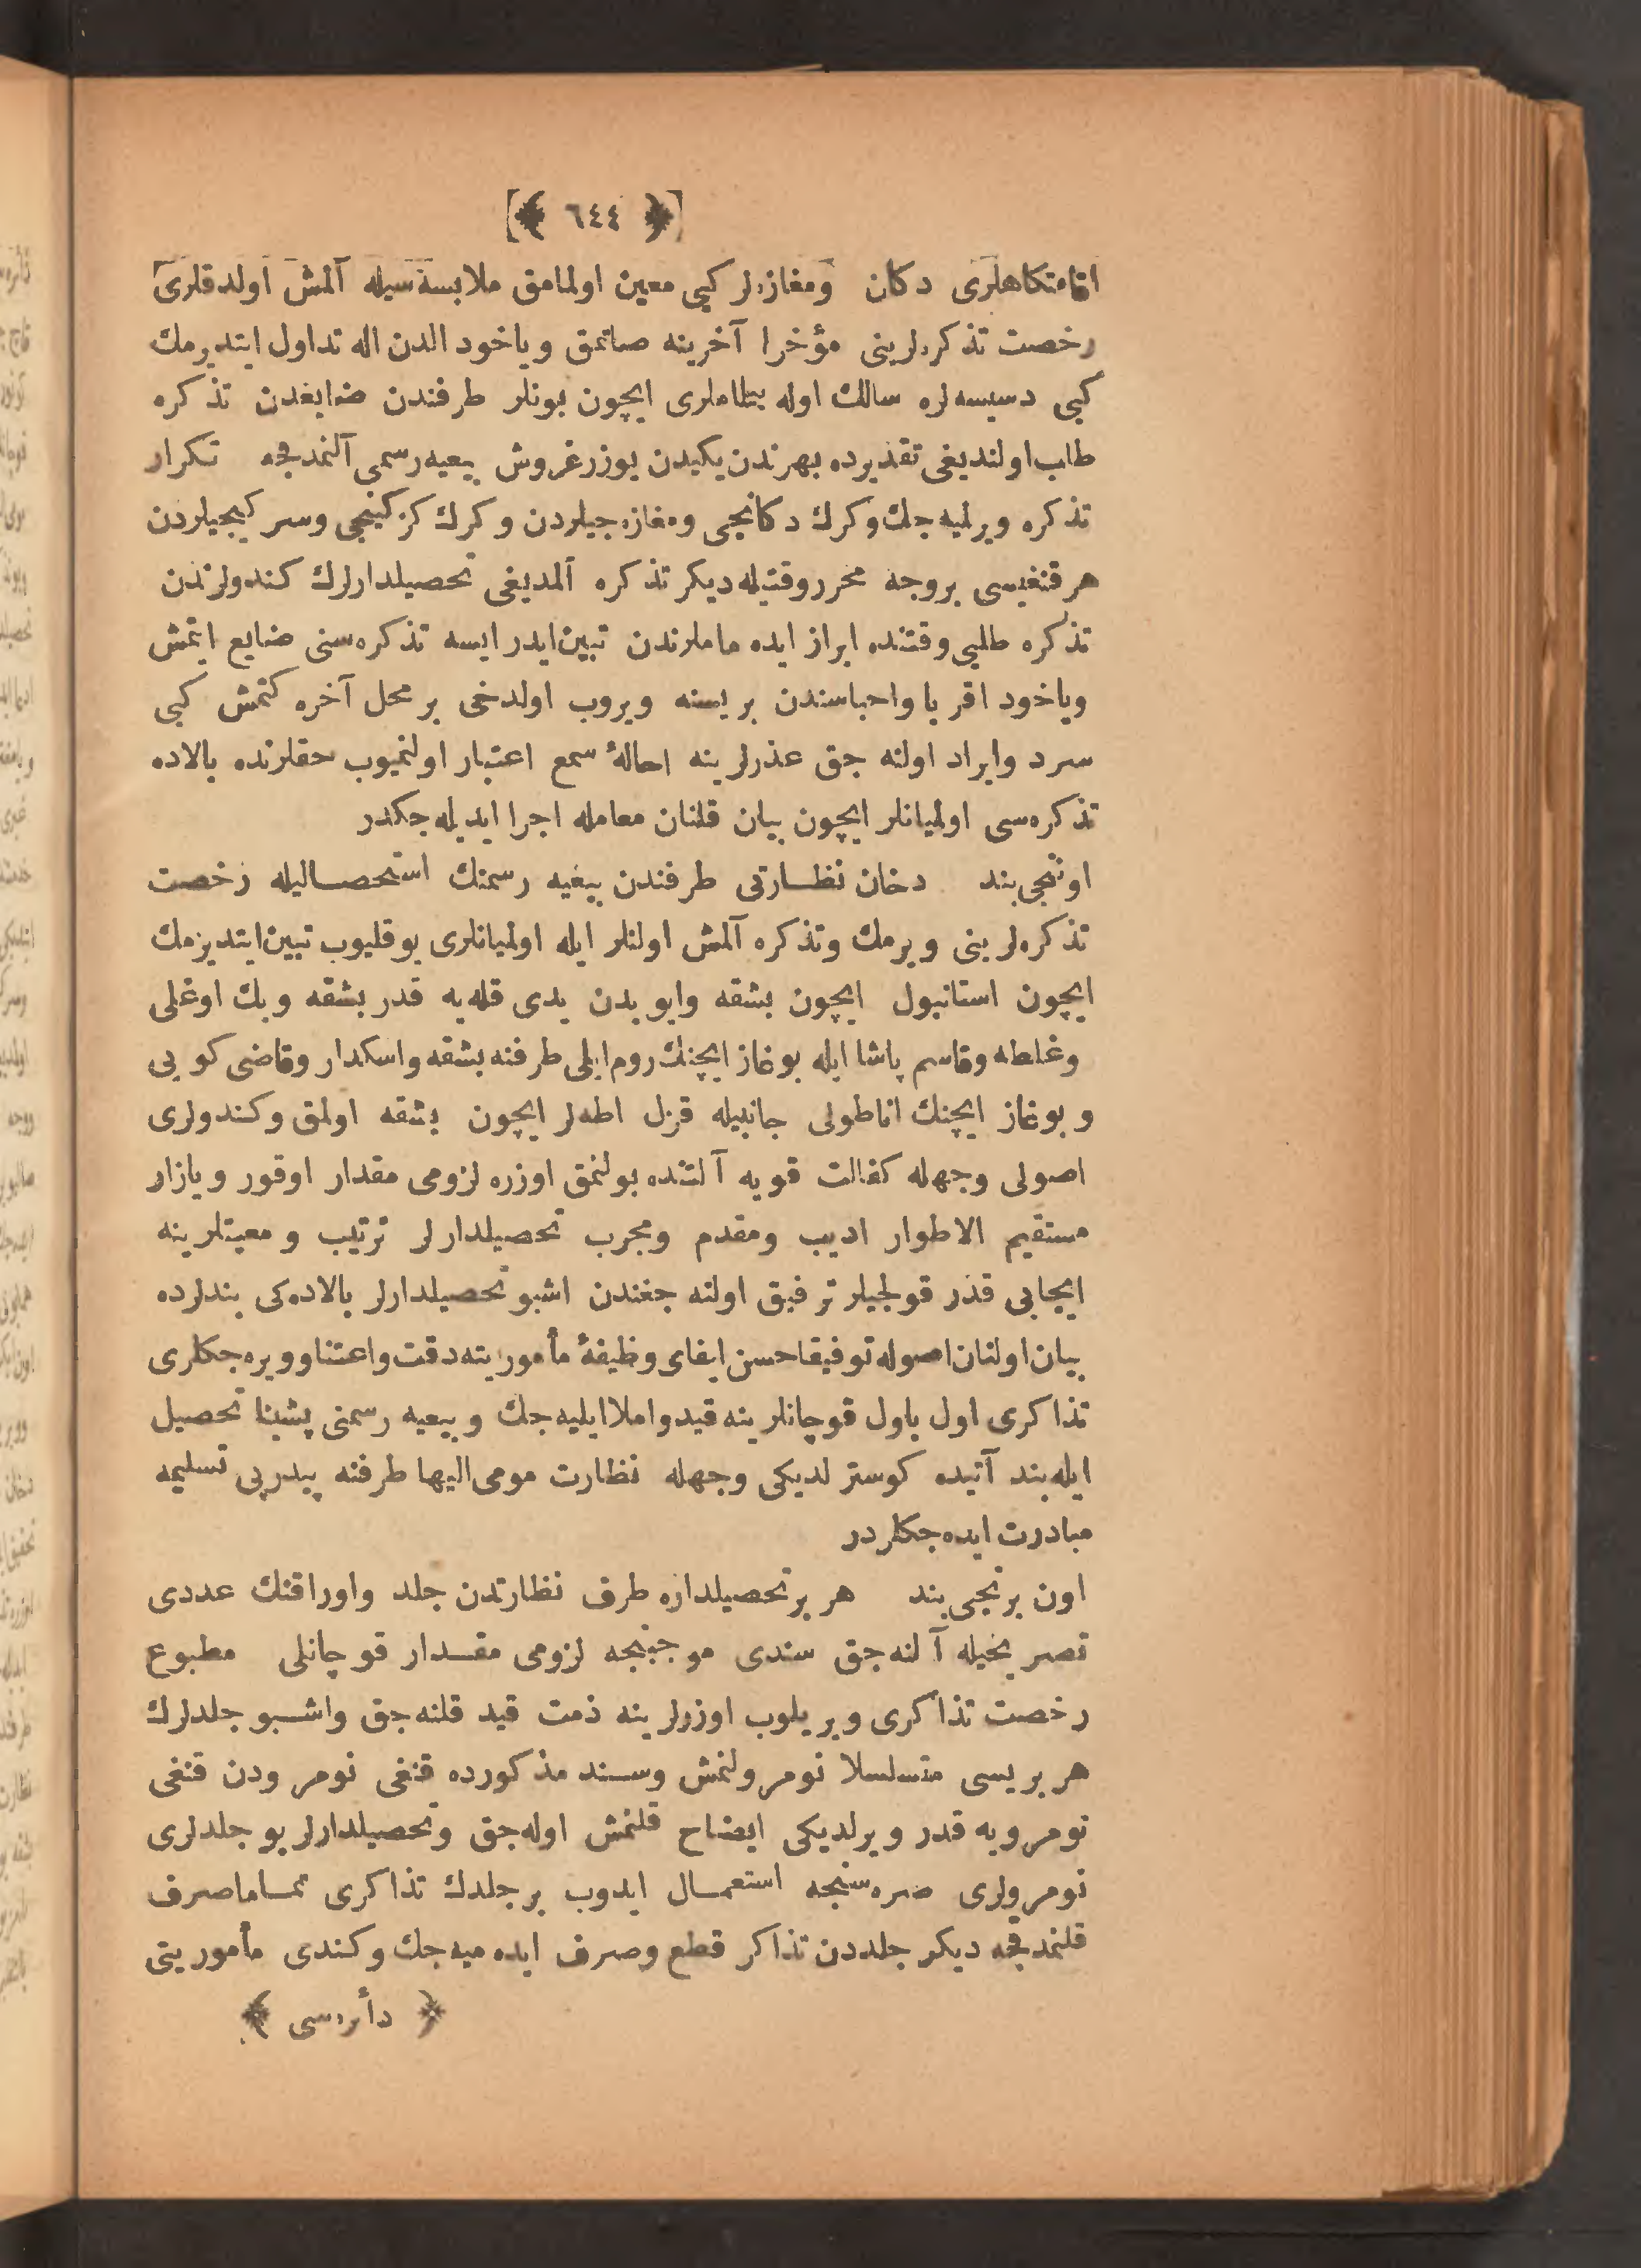 ٦٤٤
اقامتكاهلری دكان ومغازه‌لر كبی معین اولمامق ملابسه‌سیله آلمش اولدقلری
رخصت تذكره‌لرینی مؤخرا آخرینه صاتمق ویاخود الدن اله تداول ایتدیرمك
كبی دسیسه‌لره سالك اوله بیلماملری ایچون بونلر طرفندن ضایعدن تذكره
طلب اولندیغی تقدیرده بهرندن یكیدن یوزر غروش بیعیه رسمی آلنمدقجه تكرار
تذكره ویرلمیه‌جك وكرك دكانجی ومغازه‌جیلردن وكرك كزكینجی وسركیجیلردن
هر قنغیسی بروجه محرر وقتیله دیكر تذكره آلمدیغی تحصیلدارلرك كندولرندن
تذكره طلبی وقتنده ابراز ایده‌ماملرندن تبین ایدر ایسه تذكره‌سنی ضایع ایتمش
ویاخود اقربا واحباسندن بریسنه ویروب اولدخی بر محل آخره كتمش كبی
سرد وایراد اولنه‌جق عذرلرینه احالهٔ سمع اعتبار اولنمیوب حقلرنده بالاده
تذكره‌سی اولمیانلر ایچون بیان قلنان معامله اجرا ایدیله‌جكدر
اونجی بند دخان نظارتی طرفندن بیعیه رسمنك استحصالیله رخصت
تذكره‌لرینی ویرمك وتذكره آلمش اولنلر ایله اولمیانلری یوقلیوب تبین ایتدیرمك
ایچون استانبول ایچون بشقه وایوبدن یدی قله‌یه قدر بشقه وبك اوغلی
وغلطه وقاسم پاشا ایله بوغاز ایچنك روم ایلی طرفنه بشقه واسكدار وقاضی كویی
وبوغاز ایچنك اناطولی جانبیله قزل اطه‌لر ایچون بشقه اولمق وكندولری
اصولی وجهله كفالت قویه آلتنده بولنمق اوزره لزومی مقدار اوقور ویازار
مستقیم الاطوار ادیب ومقدم ومجرب تحصیلدارلر ترتیب ومعیتلرینه
ایجابی قدر قولجیلر ترفیق اولنه‌جغندن اشبو تحصیلدارلر بالاده‌كی بندلرده
بیان اولنان اصوله توفیقا حسن ایفای وظیفهٔ مأموریته دقت واعتنا وویره‌جكلری
تذاكری اول باول قوچانلرینه قید واملا ایلیه‌جك وبیعیه رسمنی پشینا تحصیل
ایله بند آتیده كوسترلدیكی وجهله نظارت مومی الیها طرفنه پیدرپی تسلیمه
مبادرت ایده‌جكلردر
اون برنجی بند هر بر تحصیلداره طرف نظارتدن جلد واوراقنك عددی
تصریحیله آلنه‌جق سندی موجبنجه لزومی مقدار قوچانلی مطبوع
رخصت تذاكری ویریلوب اوزرلرینه ذمت قید قلنه‌جق واشبو جلدلرك
هر بریسی متسلسلا نومرولنمش وسند مذكورده قنغی نومرودن قنغی
نومرویه قدر ویرلدیكی ایضاح قلنمش اوله‌جق وتحصیلدارلر بو جلدلری
نومرولری صره‌سنجه استعمال ایدوب بر جلدك تذاكری تماما صرف
قلنمدقجه دیكر جلددن تذاكر قطع وصرف ایده‌میه‌جك وكندی مأموریتی
﴿ دأره‌سی ﴾